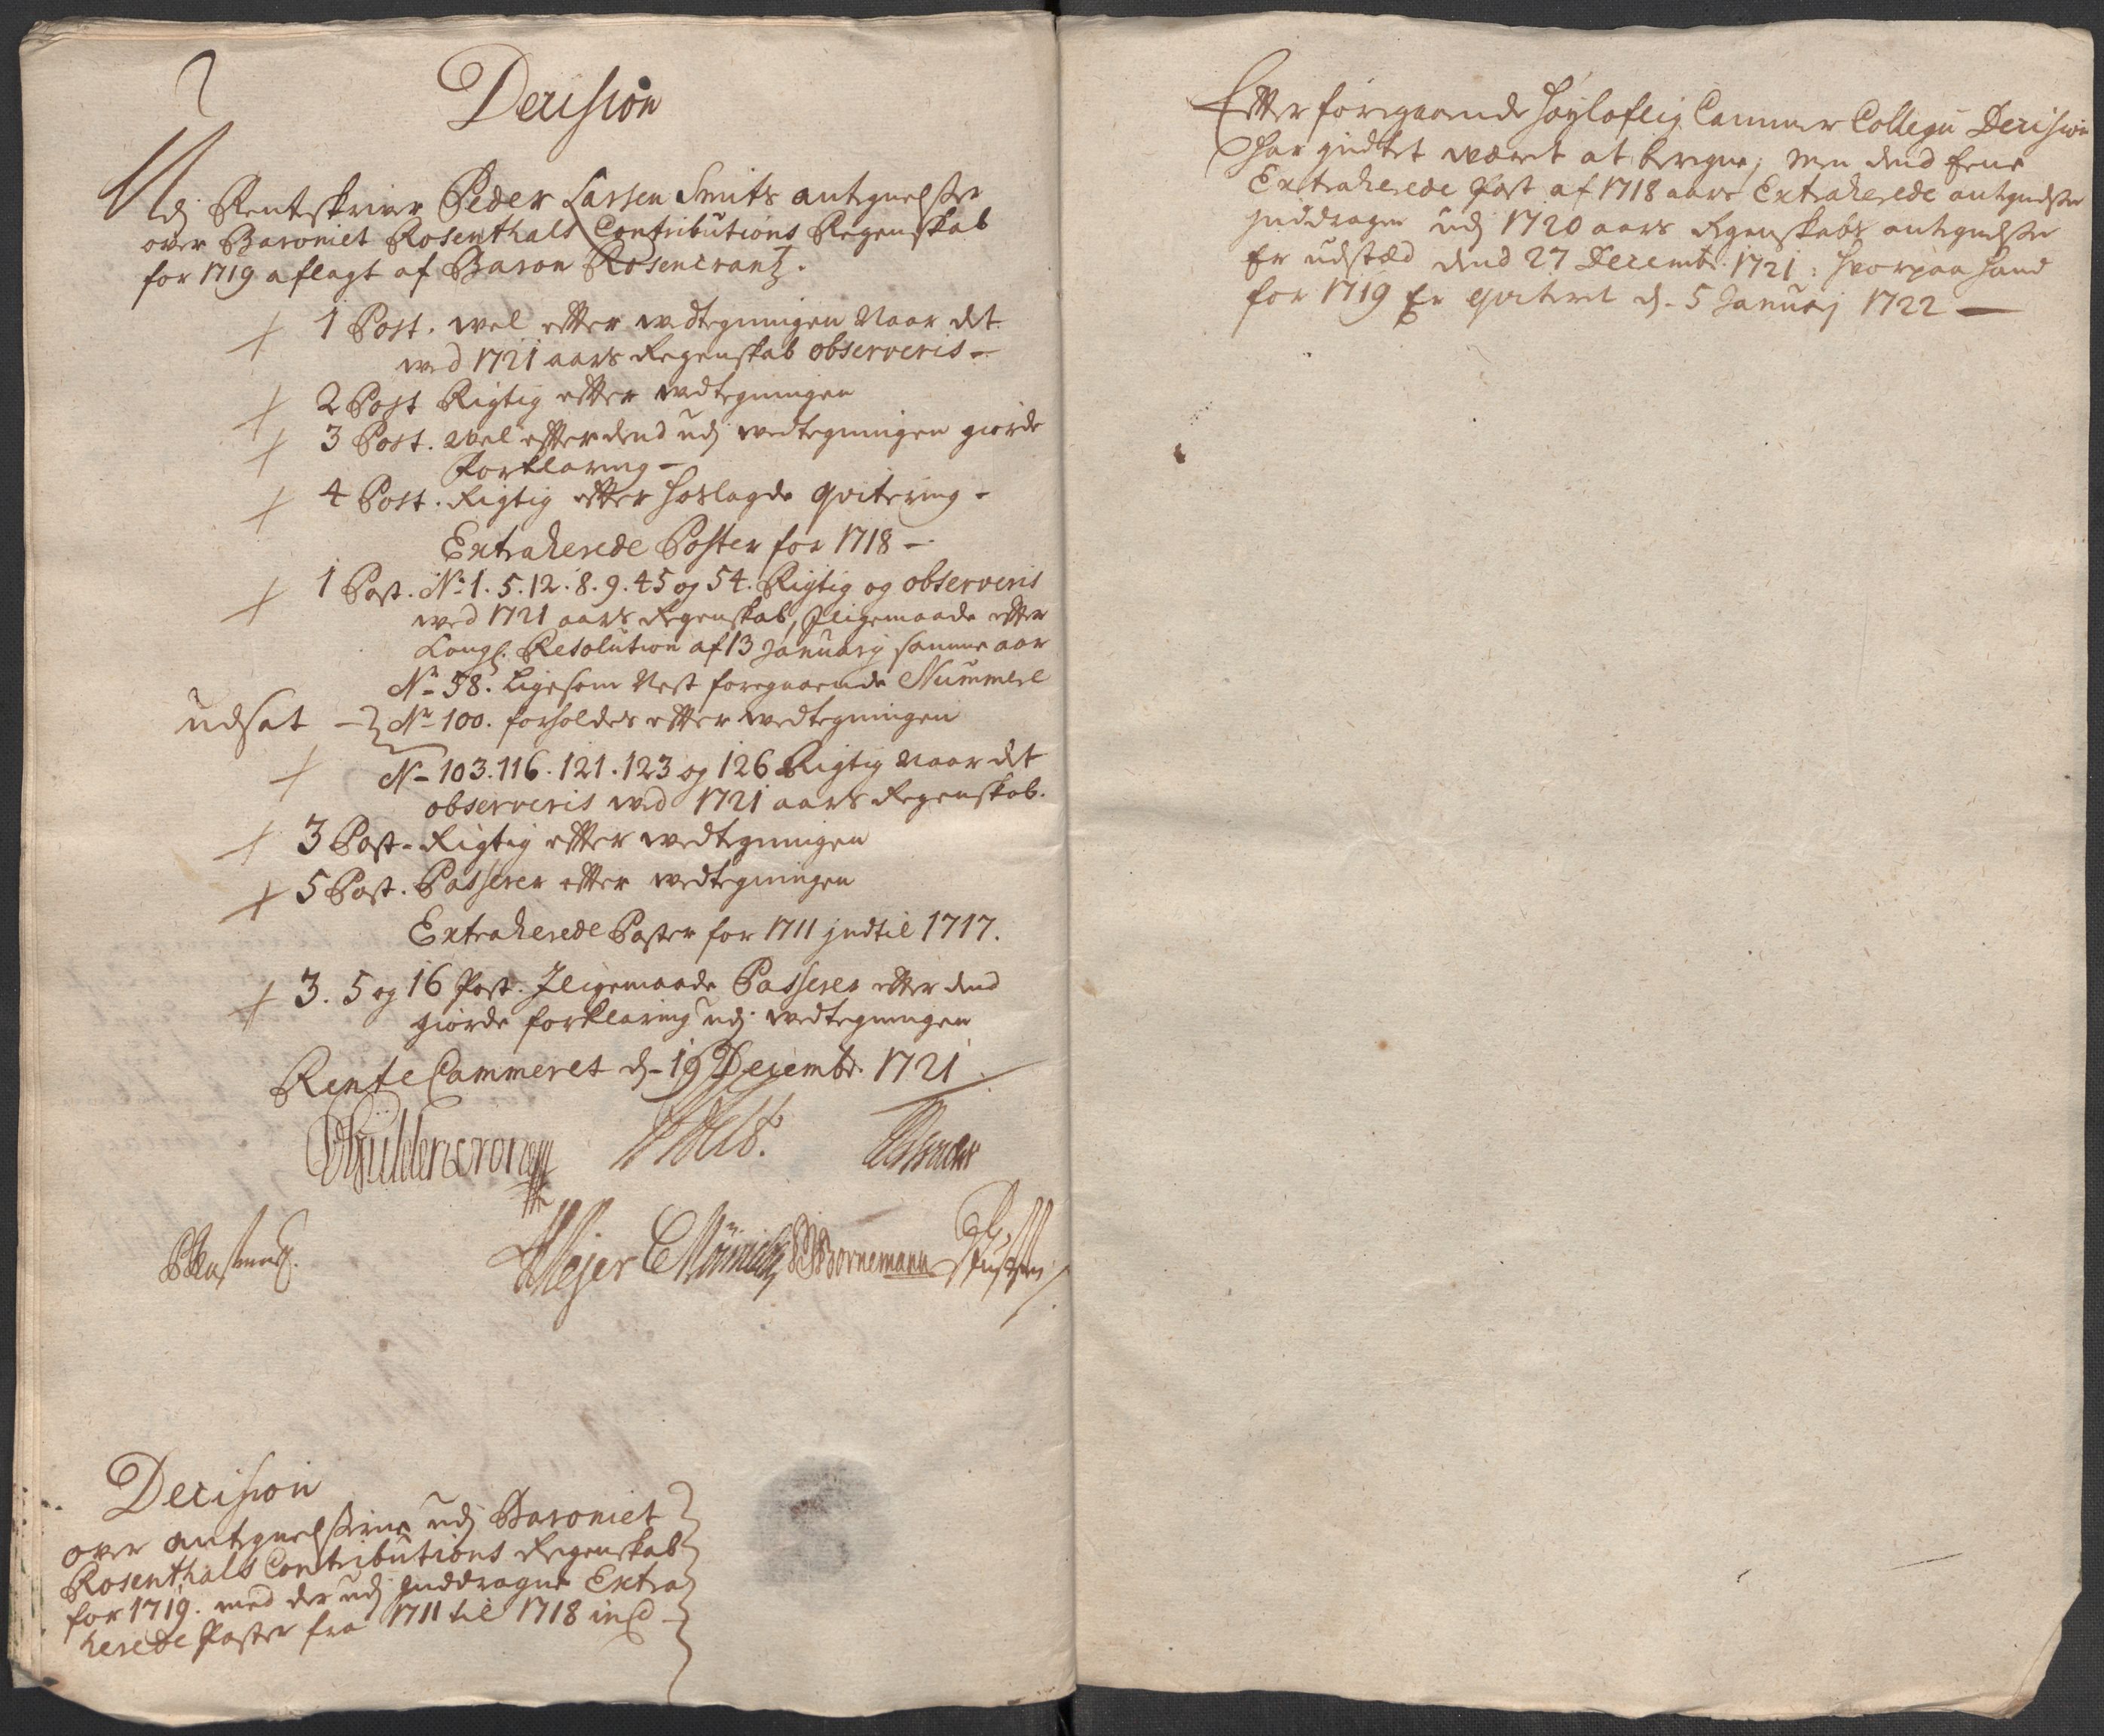 Decision
Udj Rentskriver Peder Lassen Smits antegnelser
over Baroniet Rosenthals Contributions Regenskab
for 1719 aflagt af Baron Rosencrantz.
1 Post. wel effter wedtegningen Naar det
wed 1721 aars Regenskab observeris -
2 Post Rigtig effter wedtegningen
3 Post. wel effter dend udj wedtegningen giorde
Forklaring -
4 Post. Rigtig effter hoslagde qvitering -
Extraherede Poster for 1718 -
1 Post. No 1. 5. 12. 8. 9. 45 og 54. Rigtig og observeris
wed 1721 aars Regenskab, Iligemaade effter
Kongl. Resolution af 13 January samme aar
No 58. Ligesom Nest foregaaende Nummere
udsat - No 100. forholdes effter wedtegningen
No 103. 116. 121. 123 og 126 Rigtig Naar det
observeris wed 1721 aars Regenskab.
3 Post. Rigtig effter wedtegningen
5 Post. Passerer effter wedtegningen
Extraherede Poster for 1711 indtil 1717.
3. 5 og 16 Post. Iligemaade Passerer effter dend
giorde forklaring udj wedtegningen
Rente Cammeret d. 19 Decembr. 1721
Güldencrone
Meyer Münnich Bornemann
Decision
over antegnelserne udj Baroniet
Rosenthals Contributions Regenskab
for 1719. med der udj Inddragne Extra
herede Poster fra 1711 til 1718 incl.
Effter foregaaende høyloflig Cammer Collegii Decision
har Indtet wæret at beregne, men dend Eene
Extraherede Post af 1718 aars Extraherede antegnelser
Inddragen udj 1720 aars Regenskabs antegnelser
Er udstæd dend 27 Decembr. 1721: hvorpaa hand
for 1719 Er qviteret d. 5 Januarj 1722 -